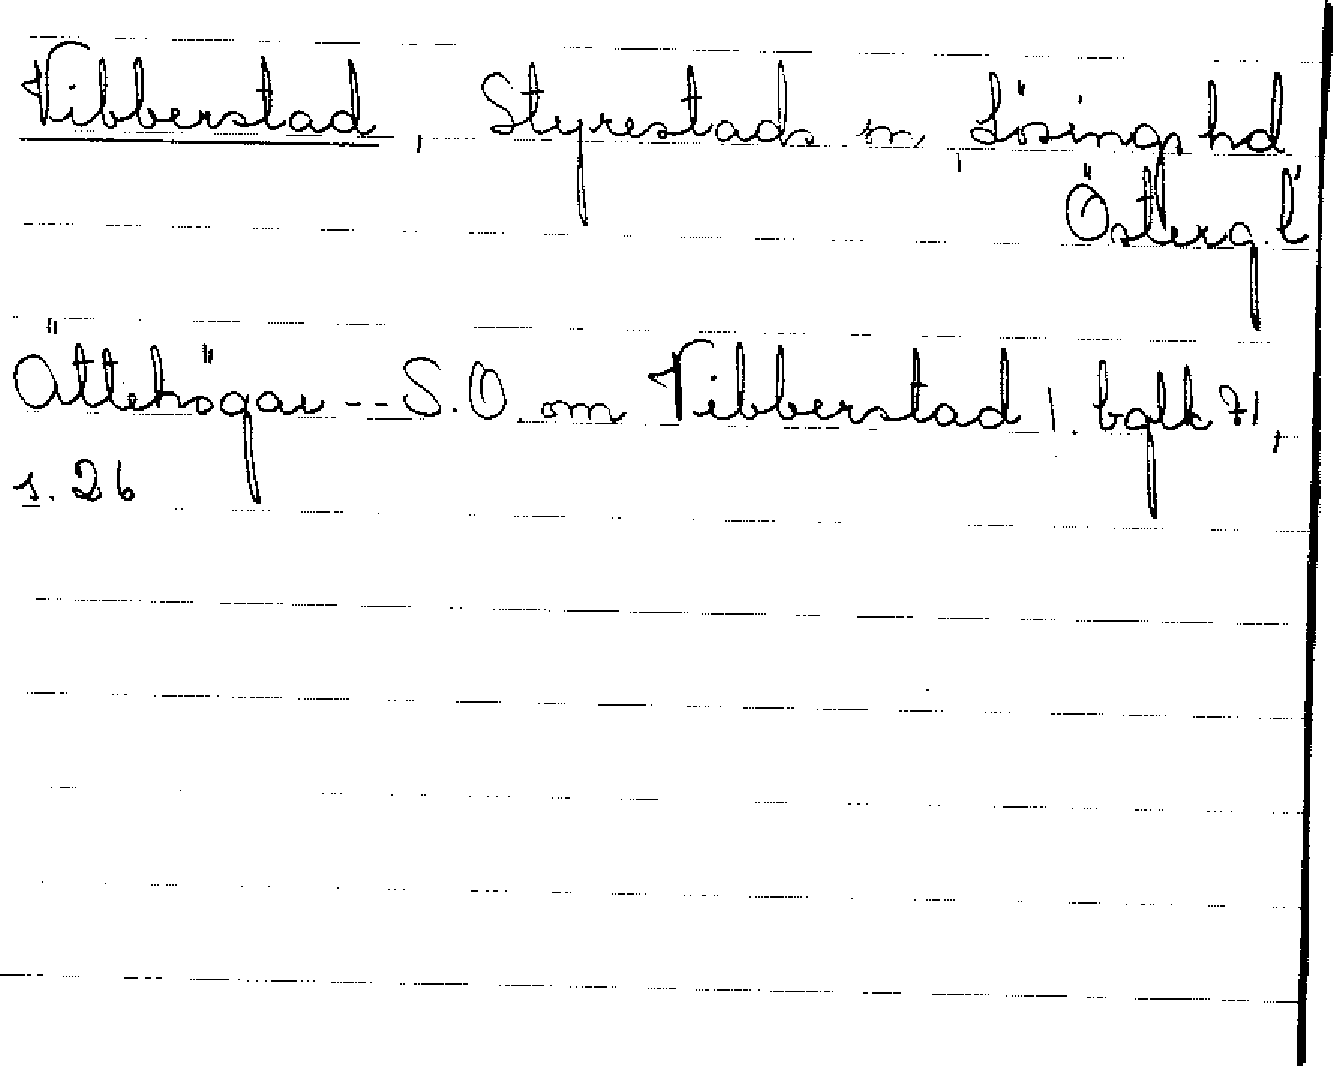 Vibberstad, Styrestads sn, Lösings hd
Österg. l
Ättehögar -- S.O. om Vibberstad l. bglk 71,
s. 26